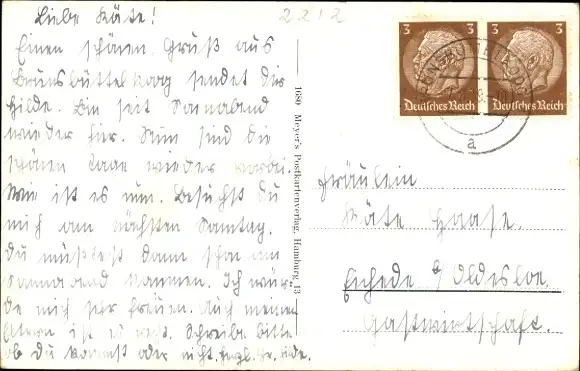 Liebe Käte!
2212
Einen schönen Gruß aus
Brunsbüttelkoog sendet Dir
Hilde. Bin seit Sonnabend
wieder hier. Nun sind die
schönen Tage wieder vorbei.
Wie ist es nun. Besuchst Du
mich am nächsten Sonntag.
Du müßtest dann schon am
Sonnabend kommen. Ich wür-
de mich sehr freuen. Auch meinen
Eltern ist es recht. Schreibe bitte
ob Du kommst oder nicht. Herzl. Gr. Hilde.
1680 Meyer's Postkartenverlag, Hamburg 13
3 3 3
Deutsches Reich Deutsches Reich
a
Fräulein
Käte Haase.
Eichede b/ Oldesloe.
Gastwirtschaft.